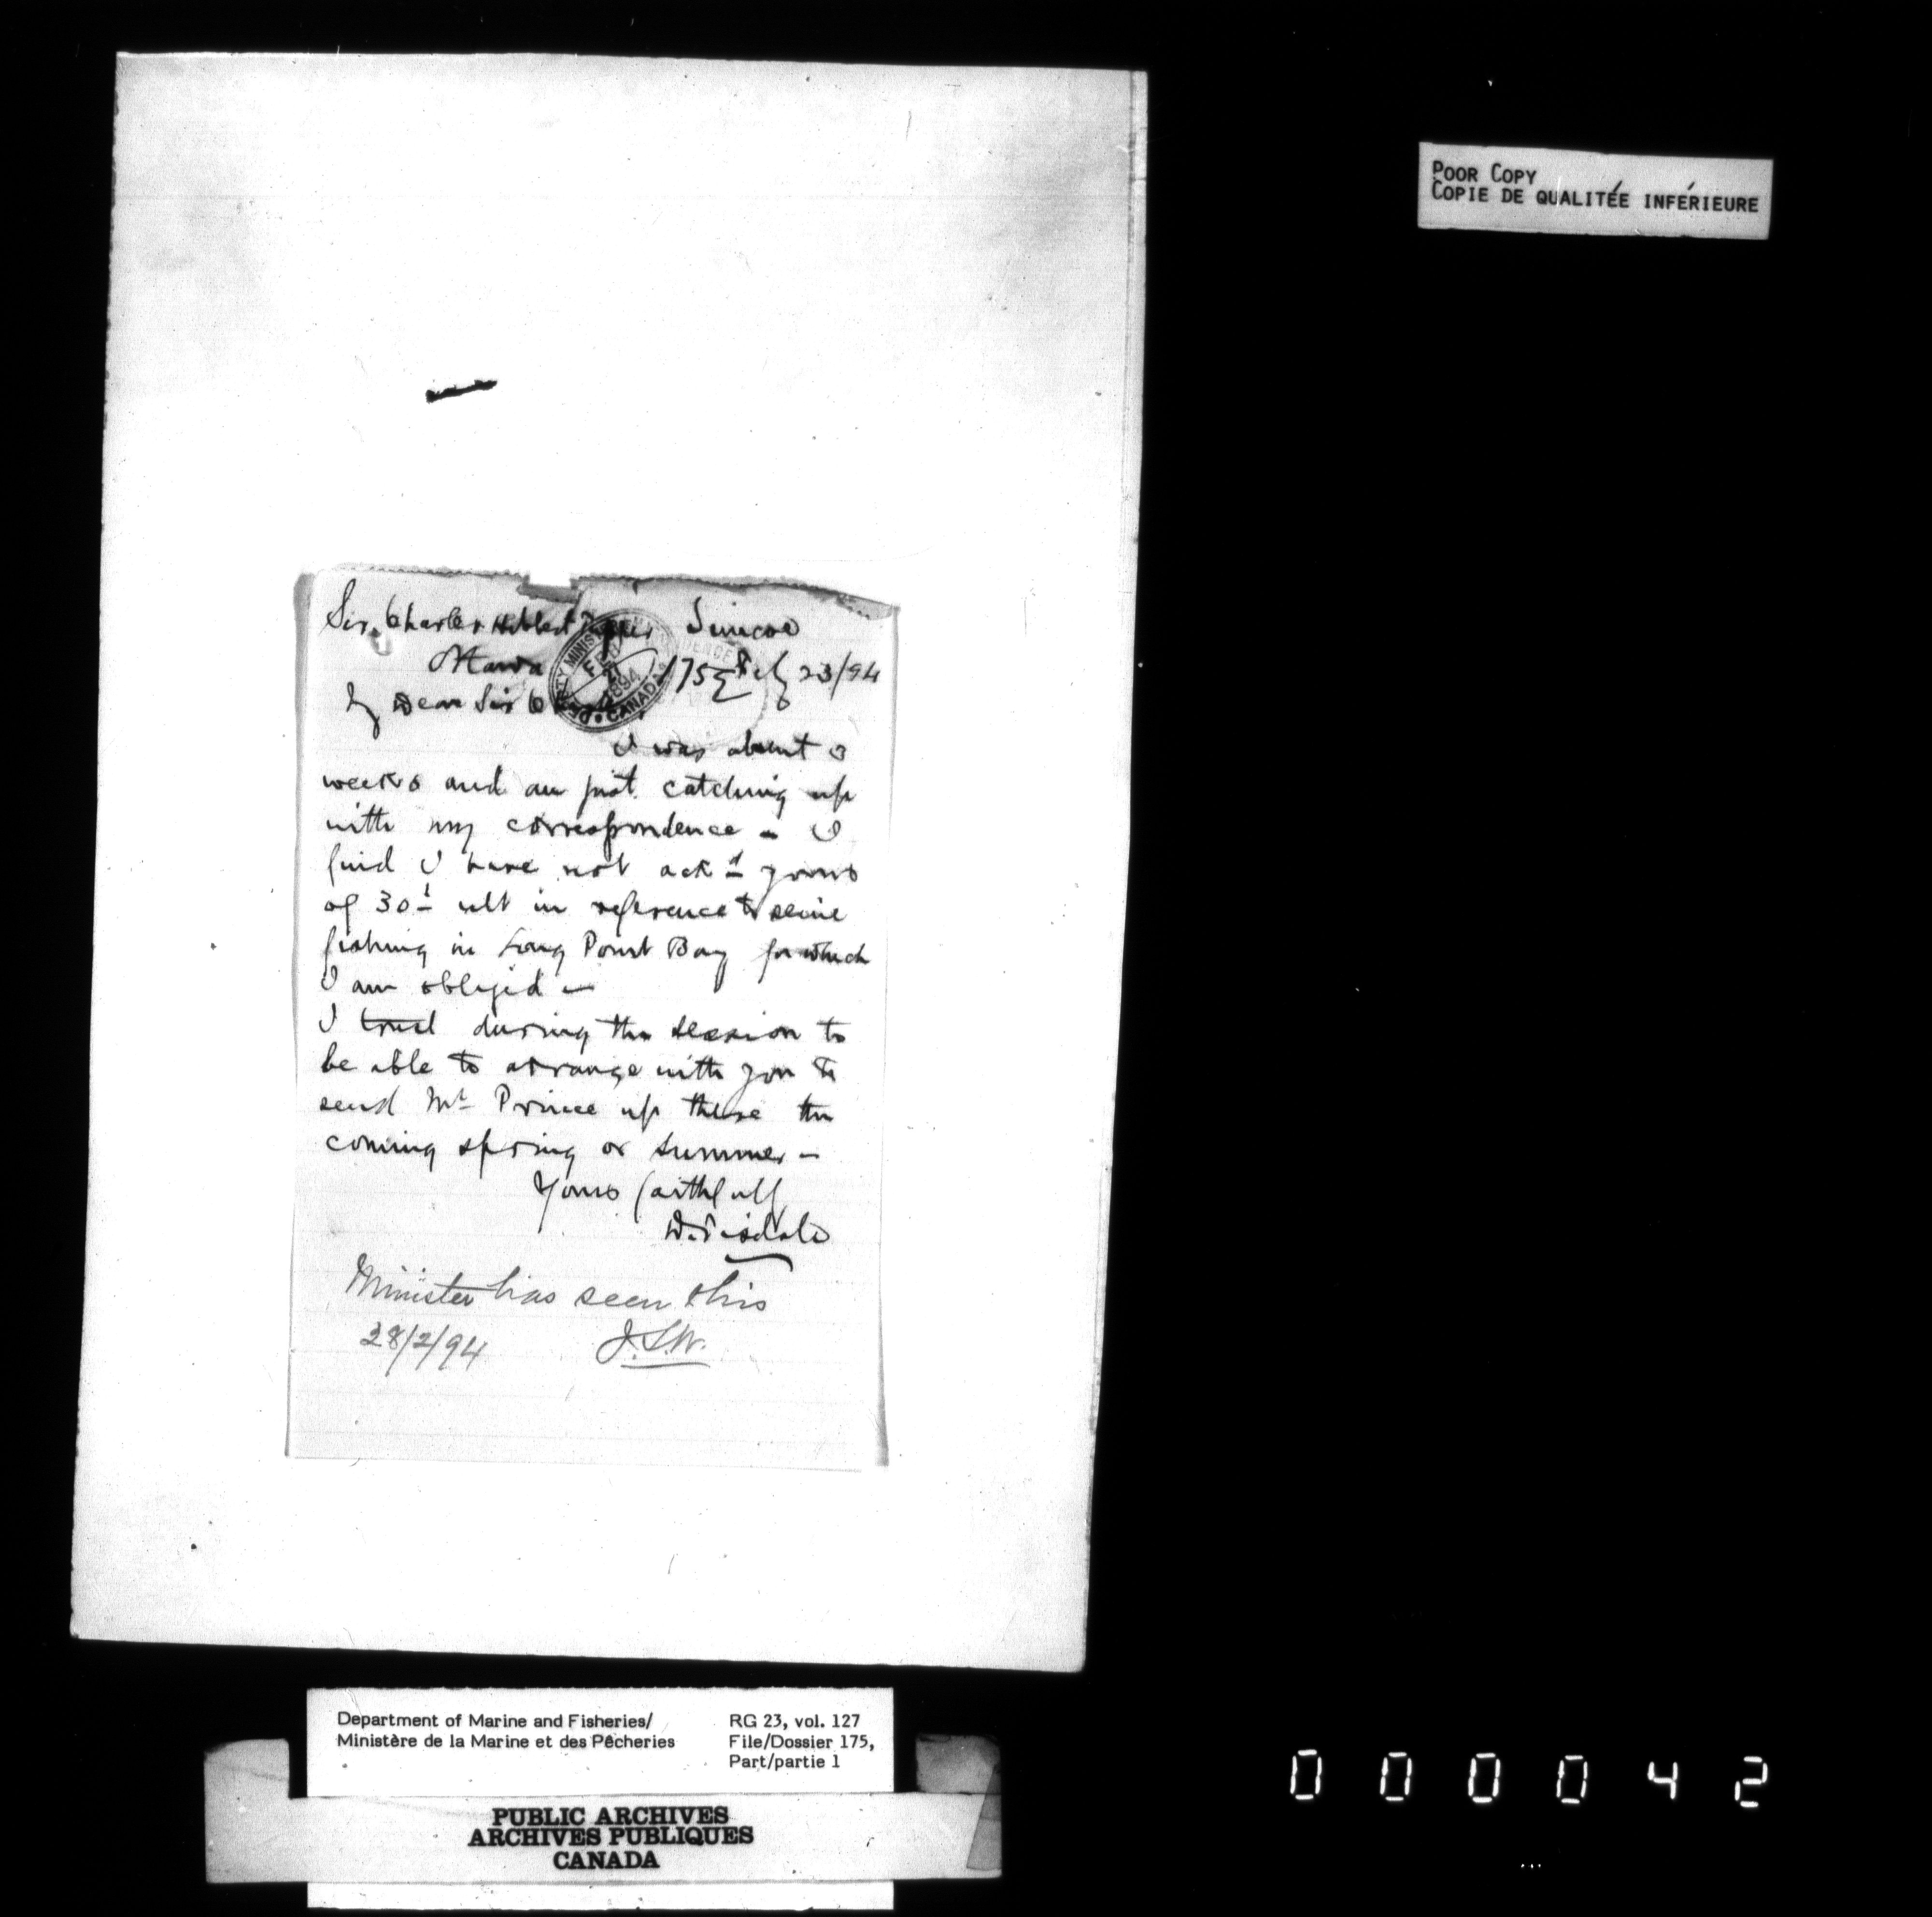 POOR COPY
COPIE DE QUALITÉE INFÉRIEURE
Sir Charles Hibbert Tupper Simcoe
Ottawa 175 Feby 23/94
My Dear Sir C
DEPUTY MINISTER
FEB 27 1894
CANADA
I was absent 3
weeks and am just catching up
with my correspondence - I
find I have not ackd yours
of 30t ult in reference to seine
fishing in Long Point Bay for which
I am obliged -
I trust during the session to
be able to arrange with you to
send Mr Prince up there the
coming spring or summer -
Yours faithfully
D. Tisdale
Minister has seen this
28/2/94 J.S.W.
Department of Marine and Fisheries/ RG 23, vol. 127
Ministère de la Marine et des Pêcheries File/Dossier 175,
Part/partie 1
PUBLIC ARCHIVES
ARCHIVES PUBLIQUES
CANADA
000042